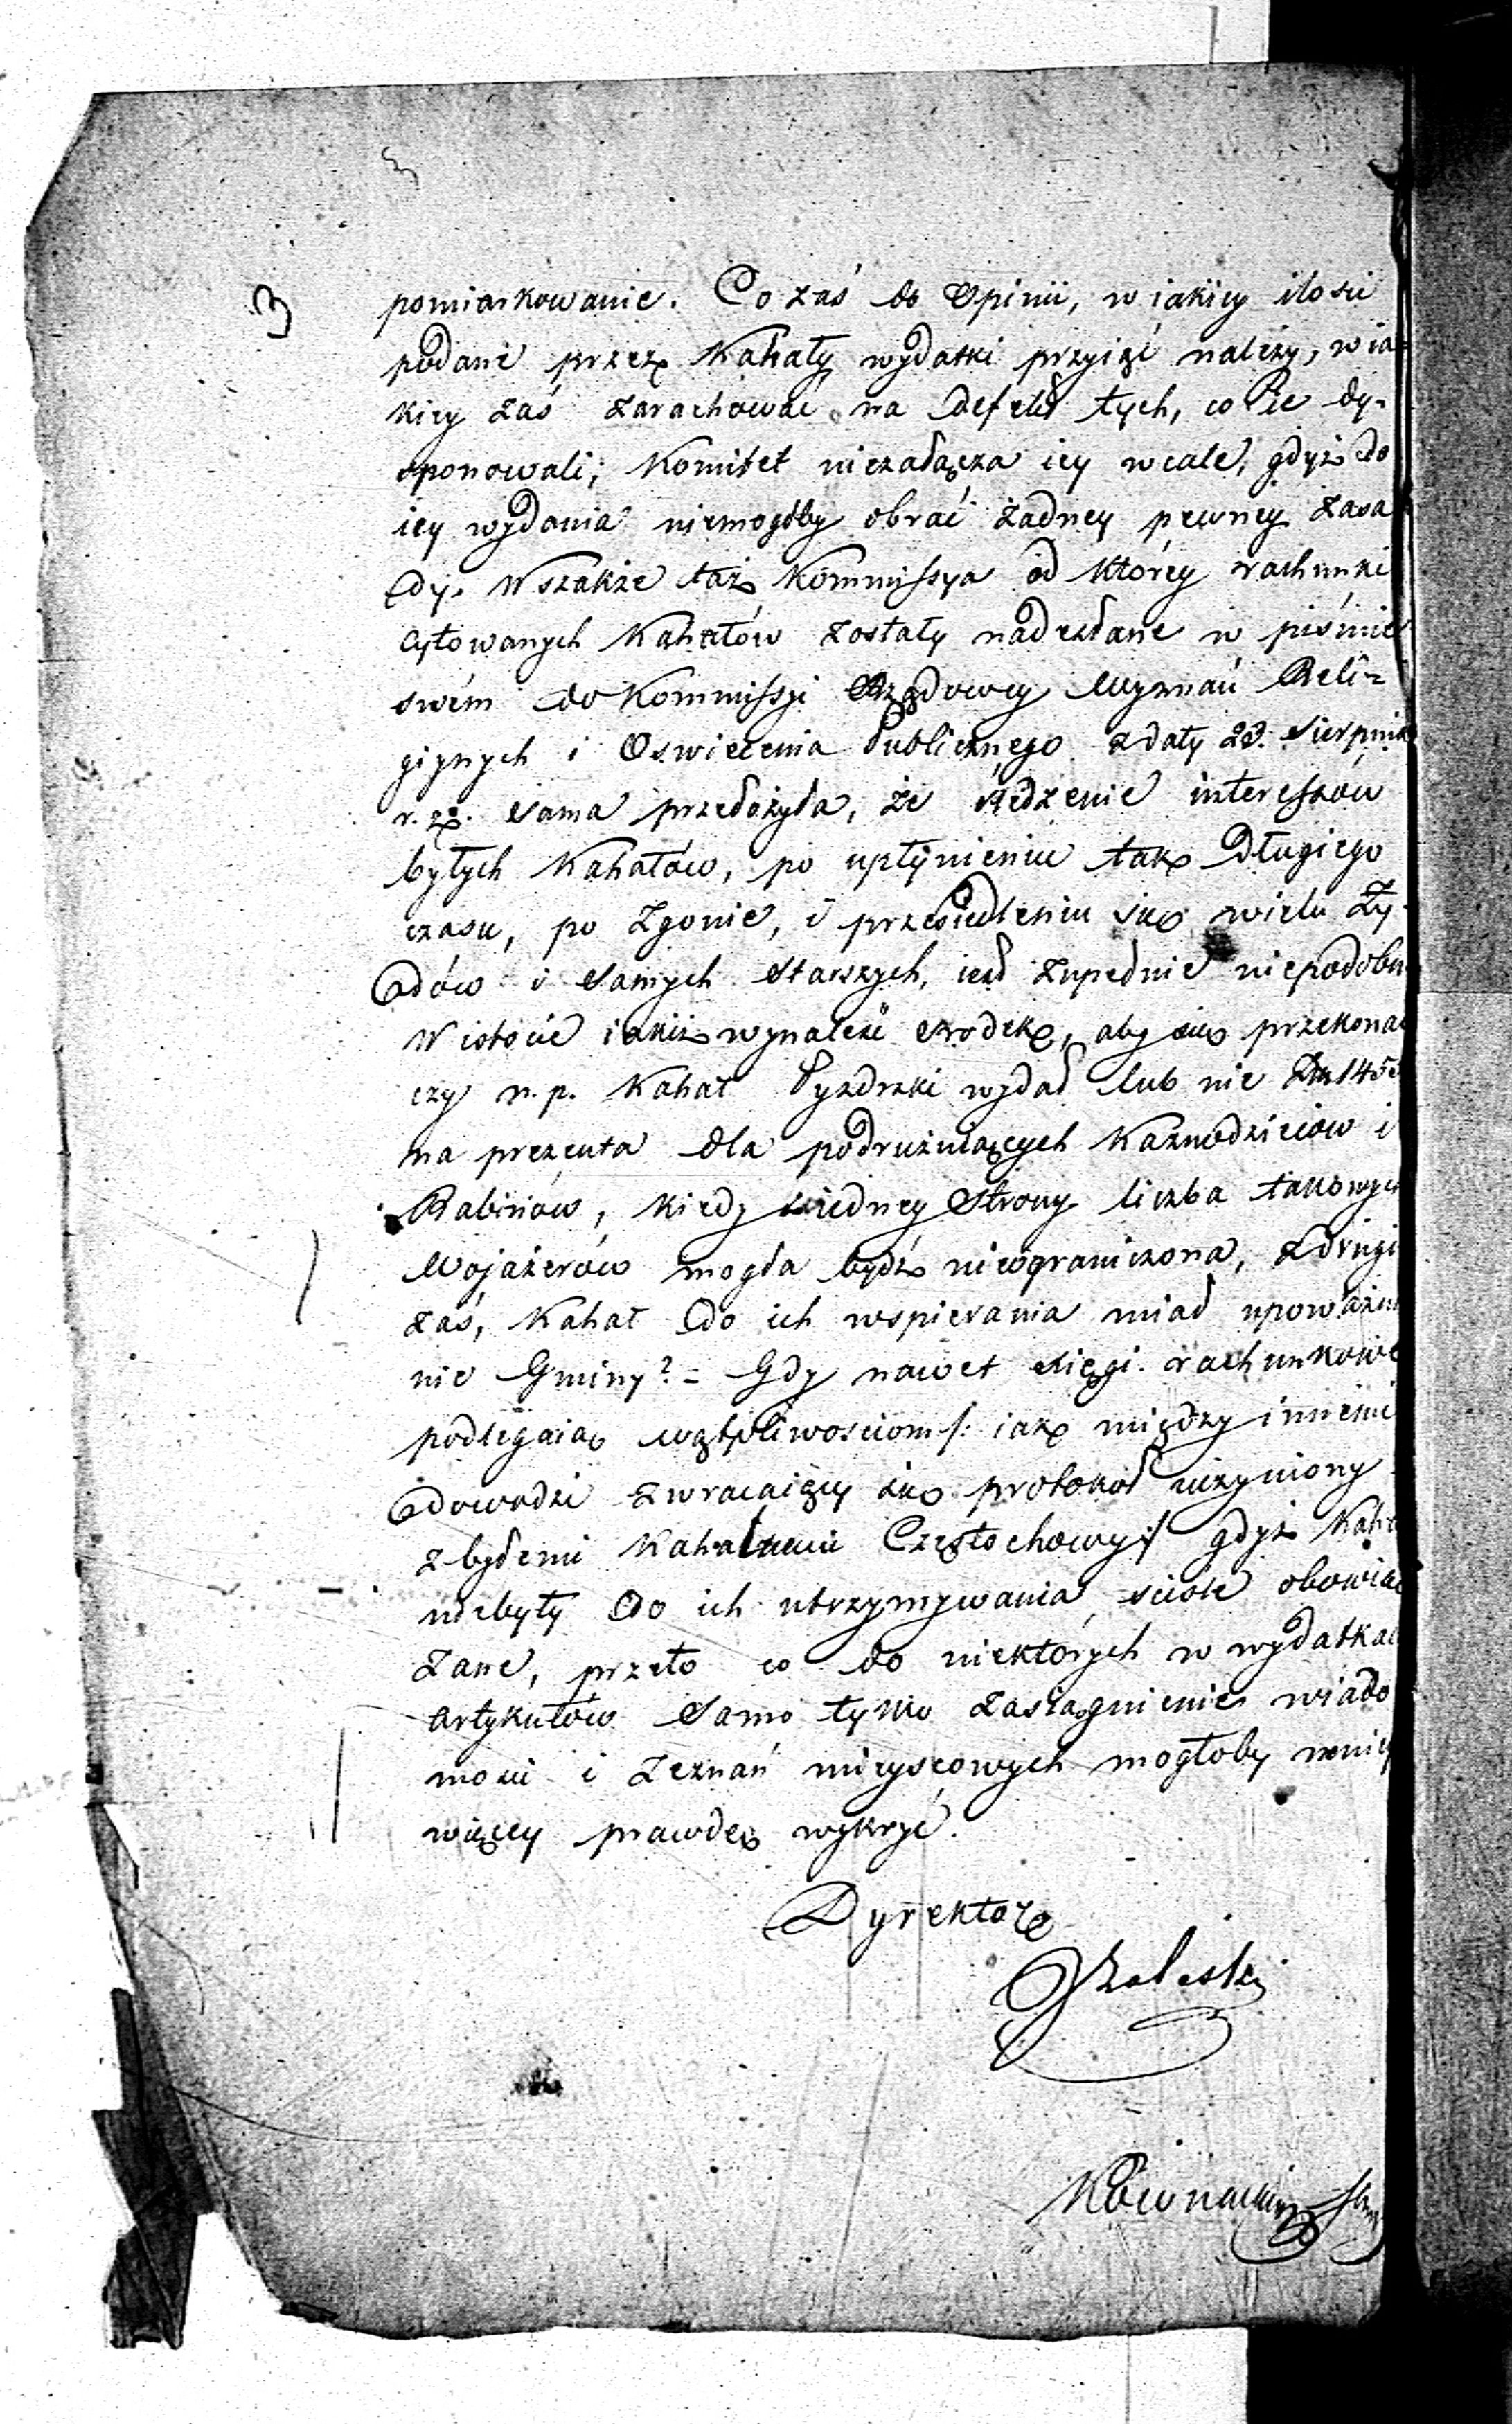 3
3
pomiarkowanie. Co zaś do Opinii, w iakiey ilości
podane przez Kahały wydatki przyiąć należy, w ia=
kiey zaś zarachować na defekt tych, co Nie dy-
sponowali; Komitet niezałącza iey wcale, gdyż do
iey wydania niemogłby obrać żadney pewney zasa
dy. Wszakże taż Kommissya od którey rachunki
cytowanych Kahałów zostały nadesłane w piśmie
swém do Kommissyi Rządowey Wyznań Reli=
giynych i Oswiecenia Publicznego z daty 23. Sierpnia
r. z. sama przełożyła, że śledzenie interessów
byłych Kahałów, po upłynieniu tak długiego
czasu, po zgonie, i przesiedleniu się wielu Ży-
dów i samych Starszych, iest zupełnie niepodobn
W istocie iakiż wynaleść srodek, aby się przekonać
czy n. p. Kahał Pyzdrski wydał lub nie 145
na prezenta dla podrużuiących Kaznodzieiów i
Rabinów, kiedy z iedney strony liczba takowych
Wojażerów mogła bydź nieograniczona, z drugi
zaś, Kahał do ich wspierania miał upoważni
nie Gminy? = Gdy nawet xięgi rachunkowe
podlegaią wątpliwosciom /: iak między innemi
dowodzi zwracaiący się protokół uczyniony
z byłemi Kahalnemi Częstochowy :/ gdyż Kaha
niebyły do ich utrzymywania sciśle obowią
zane, przeto co do niektórych w wydatkac
artykułów samo tylko zasiągnienie wiado
mości i zeznań mieyscowych mogłoby mniey
więcey prawdę wykryć.
Dyrektor
JZaleski
Kownacki